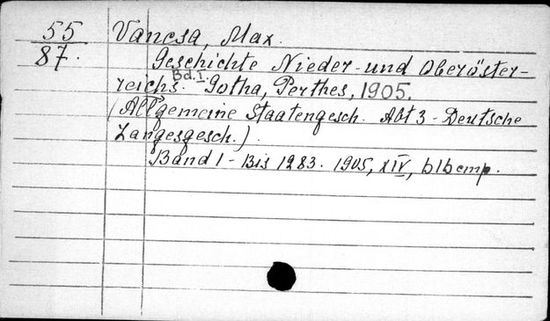 55
87.
Vancsa, Max.
Geschichte Nieder- und Oberöster-
reichs. Bd. I. Gotha, Perthes, 1905.
(Allgemeine Staatengesch. Abt 3 - Deutsche
Langesgesch.).
Band 1 - Bis 1283. 1905, XIV, 616 стр.